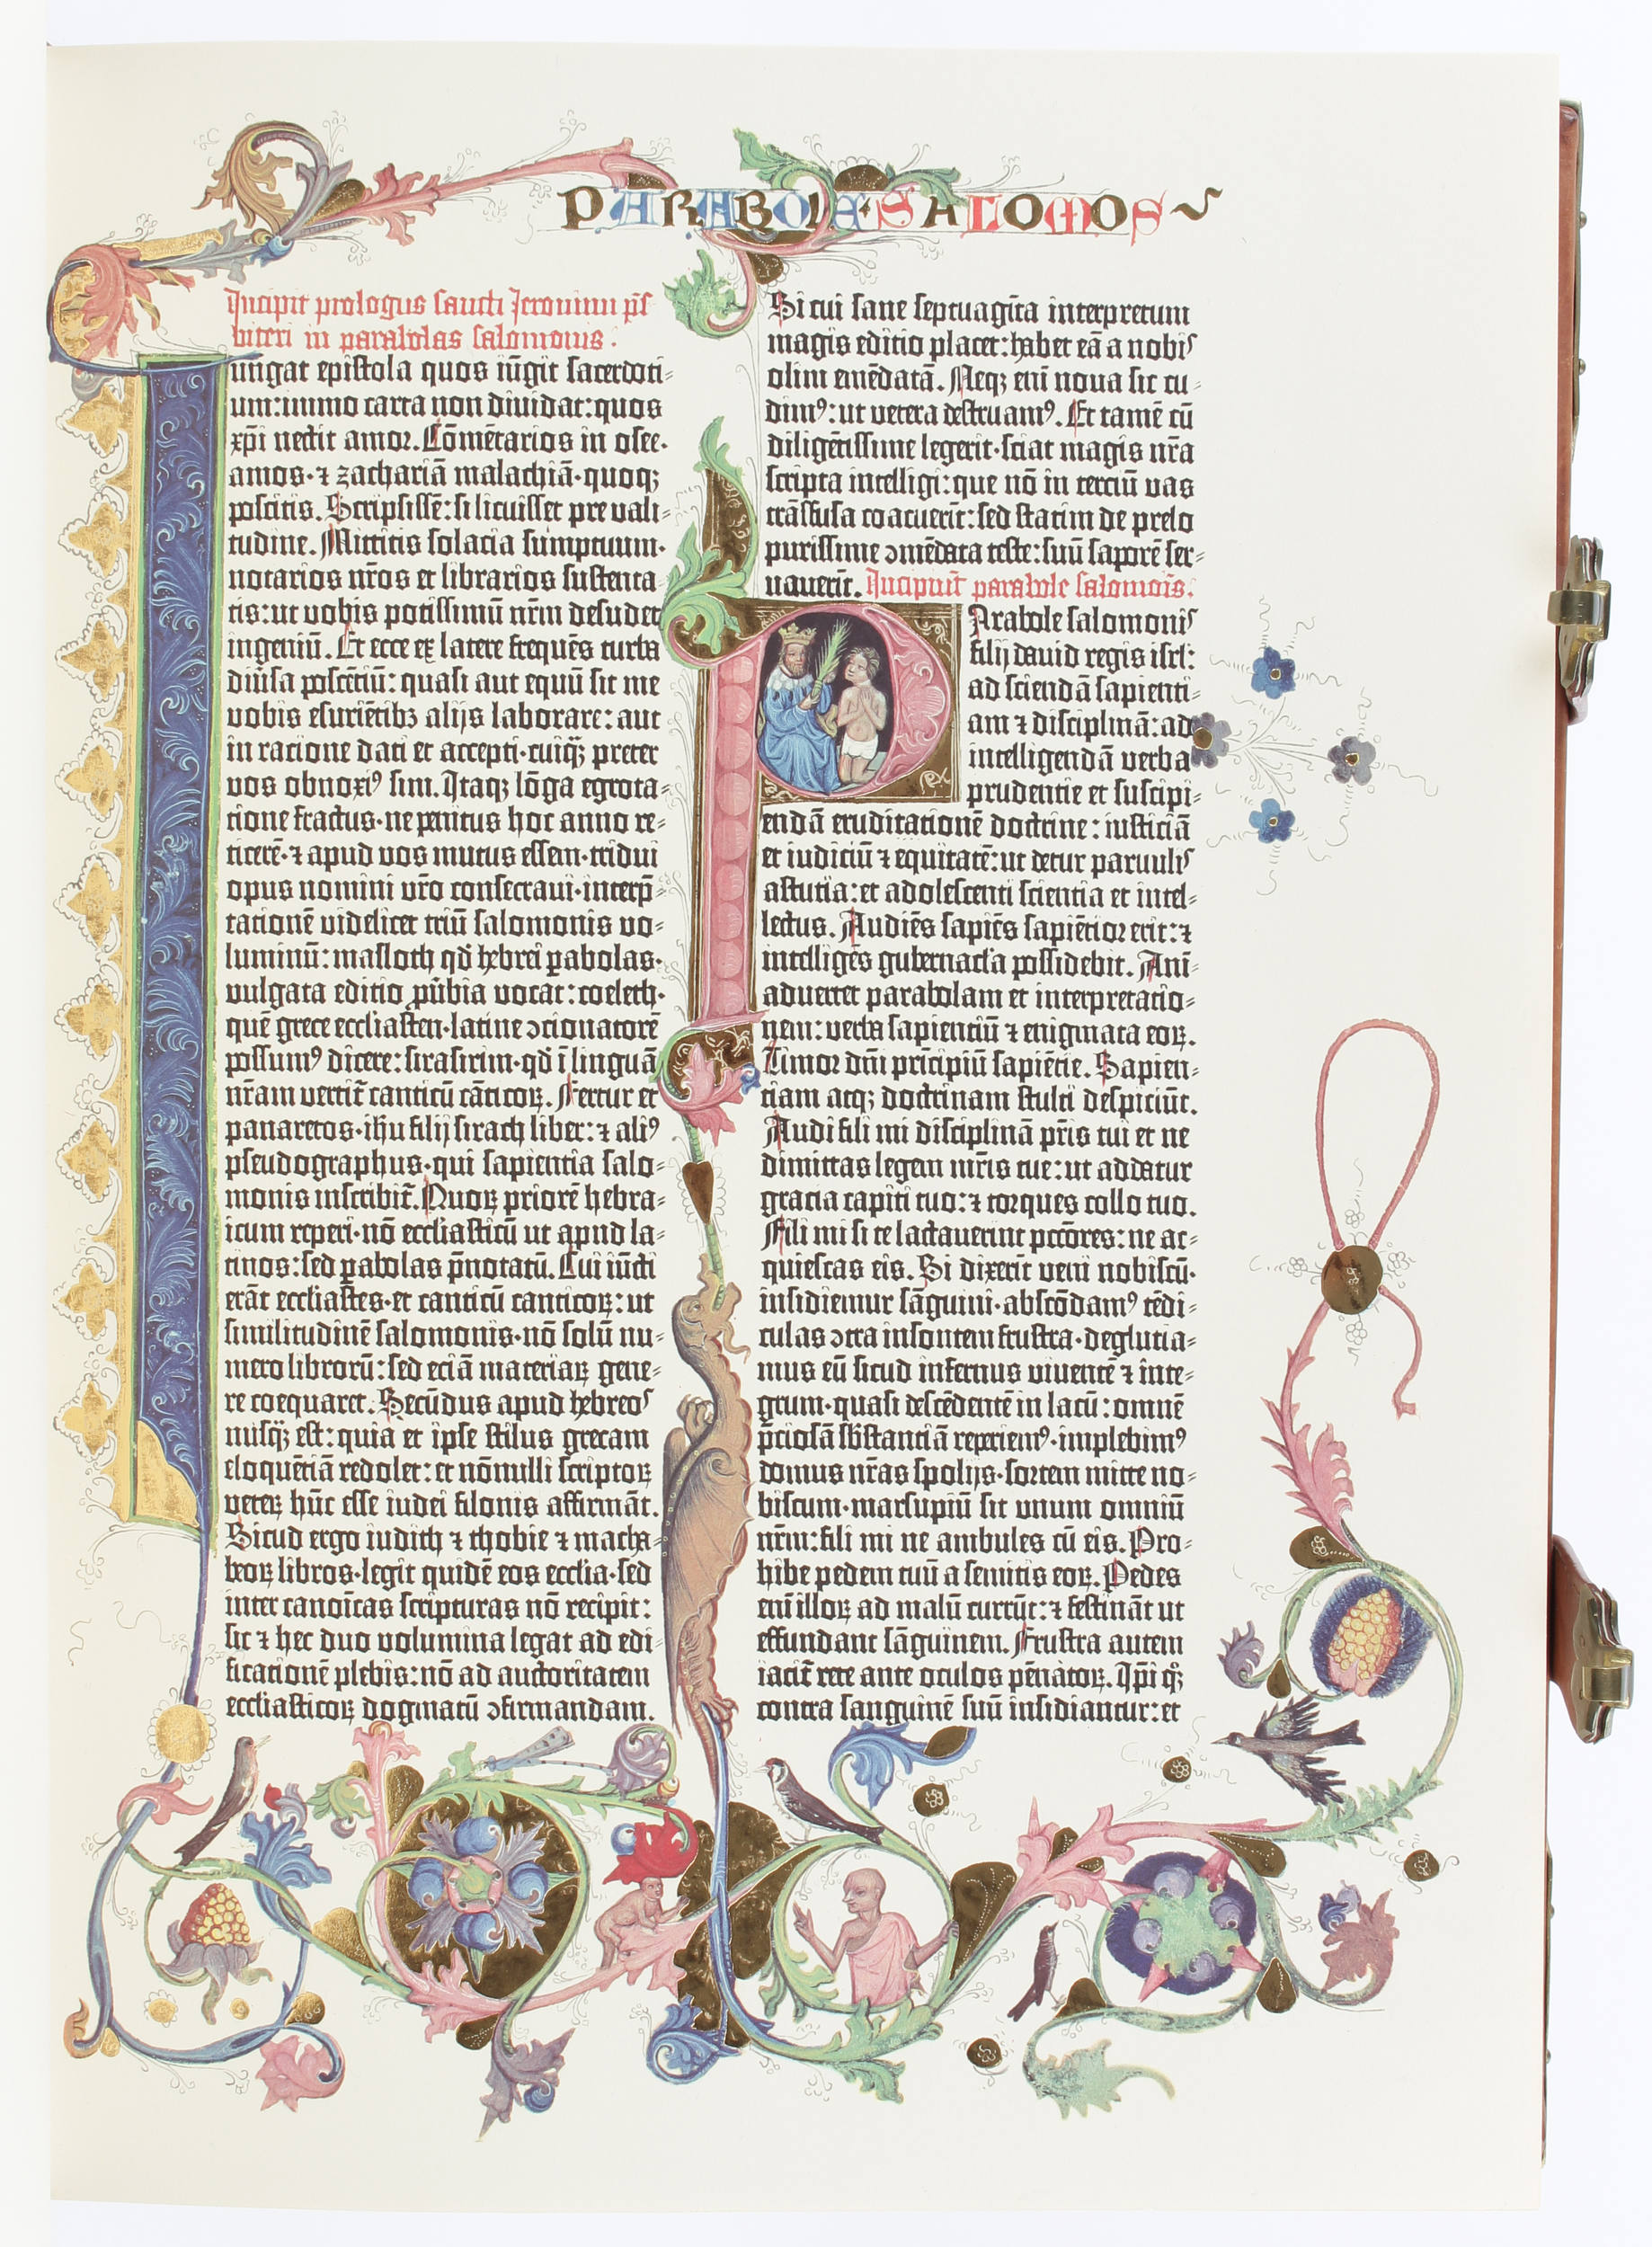 PARABOLE·SALOMOS
Incipit prologus sancti Jeronimi p̄s
biteri in parabolas salomonis.
Iungat epistola quos iūgit sacerdoti-
um: immo carta non dividat: quos
xp̄i nectit amor. Cōmētarios in osee·
amos·⁊ zachariā malachiā·quoqꝫ
poscitis. Scripsissē: si licuisset pre vali-
tudine. Mittitis solacia sumptuum·
notarios nr̄os et librarios sustenta-
tis: ut vobis potissimū nr̄m desudet
ingeniū. Et ecce ex latere frequēs turba
diūsa poscētiū: quasi aut equū sit me
vobis esuriētibꝫ alijs laborare: aut
in racione dati et accepti·cuiqꝫ̄ preter
vos obnoxiꝰ sim. Itaqꝫ lōga egrota-
tione fractus·ne penitus hoc anno re-
ticerē·⁊ apud vos mutus essem·tridui
opus nomini vr̄o consecravi·interp̄-
tationē videlicet triū salomonis vo-
luminū: masloth qd̄ hebrei ꝑabolas·
vulgata editio ꝓūbia vocat: coeleth·
quē grece eccliasten·latine ꝯcionatorē
possumꝰ dicere: sirasirim·qd̄ ī linguā
nr̄am vertit̄ canticū cāticoꝝ. Fertur et
panaretos·ih̄u filij sirach liber: ⁊ aliꝰ
pseudographus·qui sapientia salo-
monis inscribit̄. Quoꝝ priorē hebra-
icum reperi·nō ecclīasticū ut apud la-
tinos: sed ꝑabolas p̄notatū. Cui iūcti
erāt ecclīastes·et canticū canticoꝝ: ut
similitudinē salomonis·nō solū nu-
mero librorū: sed eciā materiaꝝ gene-
re coequaret. Secūdus apud hebreos
nusqꝫ̄ est: quia et ipse stilus grecam
eloquētiā redolet: et nōnulli scriptoꝝ
veteꝝ hūc esse iudei filonis affirmāt.
Sicud ergo iudith ⁊ thobie ⁊ macha-
beoꝝ libros·legit quidē eos ecclīa·sed
inter canoīcas scripturas nō recipit:
sic ⁊ hec duo volumina legat ad edi-
ficationē plebis: nō ad auctoritatem
ecclīasticoꝝ dogmatū ꝯfirmandam.
Si cui sane septuagīta interpretum
magis editio placet: habet eā a nobis
olim emēdatā. Neqꝫ enī nova sic cu-
dimꝰ: ut vetera destruamꝰ. Et tamē cū
diligētissime legerit·sciat magis nr̄a
scripta intelligi: que nō in terciū vas
trāsfusa coacuerīt: sed statim de prelo
purissime ꝯmēdata teste: suū saporē ser-
vaverīt. Incipiūt parabole salomōis.
Parabole salomonis
filij david regis isrl̄:
ad sciendā sapienti-
am ⁊ disciplinā: ad
intelligendā verba
prudentie et suscipi-
endā eruditationē doctrine: iusticiā
et iudiciū ⁊ equitatē: ut detur parvulis
astutia: et adolescenti scientia et intel-
lectus. Audiēs sapiēs sapiētior erit: ⁊
intelligēs gubernacl̄a possidebit. Anī-
advertet parabolam et interpretatio-
nem: verba sapientiū ⁊ enigmata eoꝝ.
Timor dn̄i prīcipiū sapiētie. Sapien-
tiam atqꝫ doctrinam stulti despiciūt.
Audi fili mi disciplinā pr̄is tui et ne
dimittas legem mr̄is tue: ut addatur
gracia capiti tuo: ⁊ torques collo tuo.
Fili mi si te lactaverint pctōres: ne ac-
quiescas eis. Si dixerīt veni nobiscū·
insidiemur sāguini·abscōdamꝰ tēdi-
culas ꝯtra insontem frustra·deglutia-
mus eū sicud infernus viventē ⁊ inte-
grum·quasi descēdentē in lacū: omnē
p̄ciosā sb̄stantiā reperiemꝰ·implebimꝰ
domus nr̄as spolijs·sortem mitte no-
biscum·marsupiū sit unum omniū
nr̄m: fili mi ne ambules cū eis. Pro-
hibe pedem tuū a semitis eoꝝ. Pedes
enī illoꝝ ad malū currūt: ⁊ festināt ut
effundant sāguinem. Frustra autem
iacit̄ rete ante oculos pēnatoꝝ. Ip̄i qꝫ̄
contra sanguinē suū insidiantur: et